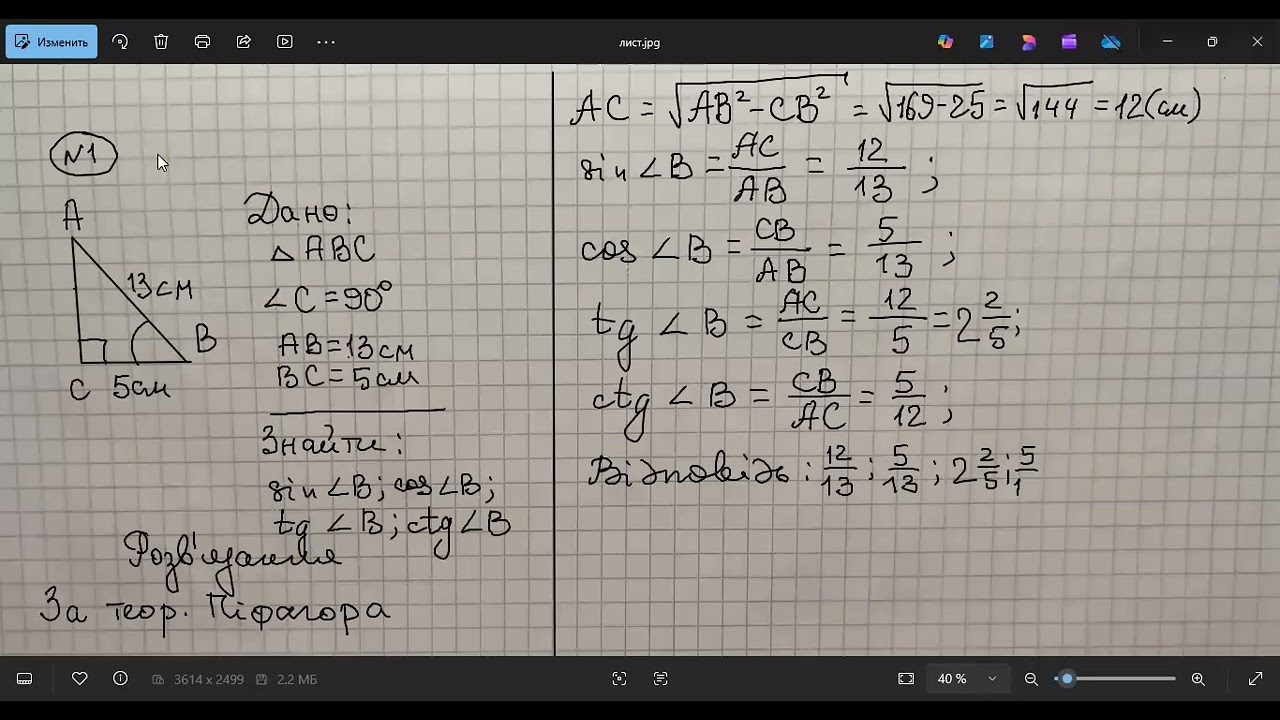 Изменить
лист.jpg
N1
A
13 см
B
C 5см
Дано:
△ ABC
∠C = 90°
AB = 13 см
BC = 5 см
Знайти:
sin ∠B; cos ∠B;
tg ∠B; ctg ∠B
Розв'язання
За теор. Піфагора
AC = √AB² - CB² = √169-25 = √144 = 12(см)
sin ∠B = AC/AB = 12/13;
cos ∠B = CB/AB = 5/13;
tg ∠B = AC/CB = 12/5 = 2 2/5;
ctg ∠B = CB/AC = 5/12;
Відповідь: 12/13; 5/13; 2 2/5; 5/1
3614 x 2499
2.2 МБ
40 %